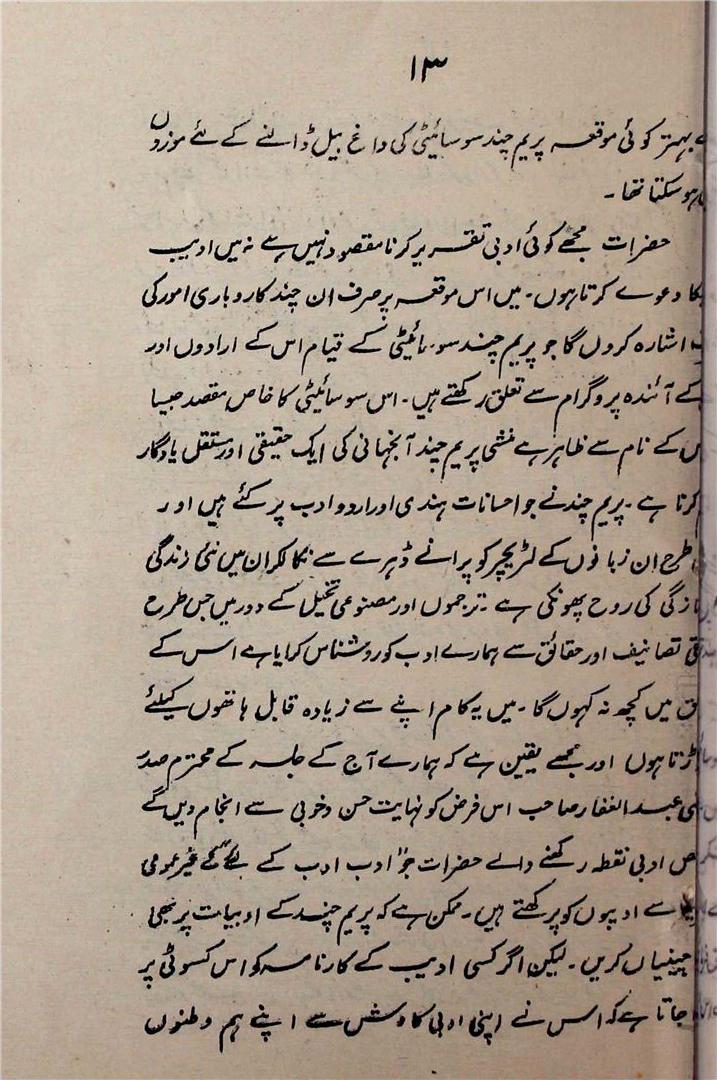 ۱۳
بہتر کوئی موقعہ پریم چند سوسائیٹی کی داغ بیل ڈالنے کے لئے موزوں
ہو سکتا تھا ۔
حضرات مجھے کوئی ادبی تقریر کرنا مقصود نہیں ہے نہ میں ادیب
کا دعوے کرتا ہوں ۔ میں اس موقعہ پر صرف ان چند کاروباری امور کی
اشارہ کروں گا جو پریم چند سوسائیٹی کے قیام اس کے ارادوں اور
کے آئندہ پروگرام سے تعلق رکھتے ہیں ۔ اس سوسائیٹی کا خاص مقصد جیسا
س کے نام سے ظاہر ہے منشی پریم چند آنجہانی کی ایک حقیقی اور مستقل یادگار
کرنا ہے ۔ پریم چند نے جو احسانات ہندی اور اردو ادب پر کئے ہیں اور
طرح ان زبانوں کے لٹریچر کو پرانے ڈہرے سے نکال کر ان میں نئی زندگی
تازگی کی روح پھونکی ہے ۔ ترجموں اور مصنوعی تخیل کے دور میں جس طرح
تصانیف اور حقائق سے ہمارے ادب کو روشناس کرایا ہے اس کے
ق میں کچھ نہ کہوں گا ۔ میں یہ کام اپنے سے زیادہ قابل ہاتھوں کیلئے
ڑتا ہوں اور مجھے یقین ہے کہ ہمارے آج کے جلسہ کے محترم صدر
عبد الغفار صاحب اس فرض کو نہایت حسن و خوبی سے انجام دیں گے
ص ادبی نقطہ رکھنے والے حضرات جو "ادب ادب کے لئے" کے غیر عمومی
سے ادیبوں کو پرکھتے ہیں ۔ ممکن ہے کہ پریم چند کے ادبیات پر بھی
چینیاں کریں ۔ لیکن اگر کسی ادیب کے کارنامہ کو اس کسوٹی پر
جاتا ہے کہ اس نے اپنی ادبی کاوش سے اپنے ہم وطنوں